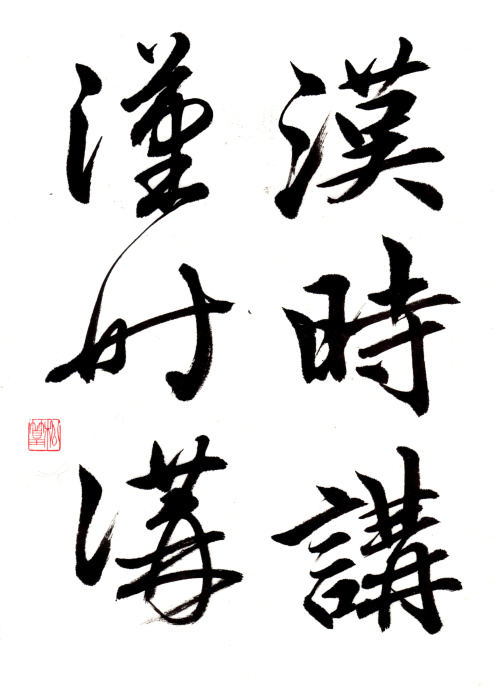 漢時講
漢時講